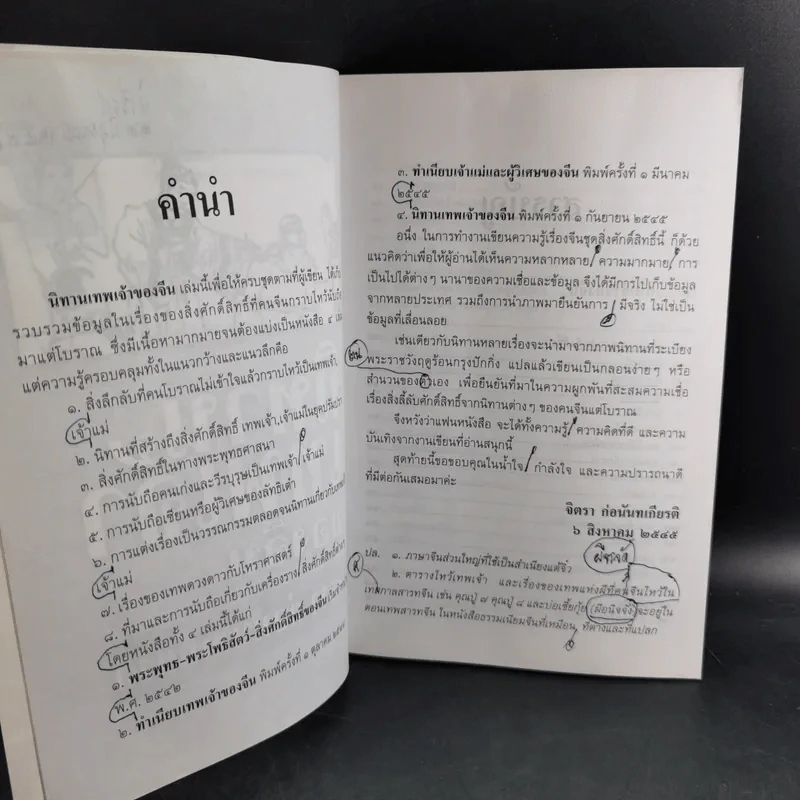 คำนำ
นิทานเทพเจ้าของจีน เล่มนี้เพื่อให้ครบชุดตามที่ผู้เขียน ได้เก็บ
รวบรวมข้อมูลในเรื่องของสิ่งศักดิ์สิทธิ์ที่คนจีนกราบไหว้นับถือ
มาแต่โบราณ ซึ่งมีเนื้อหามากมายจนต้องแบ่งเป็นหนังสือ ๔
แต่ความรู้ครอบคลุมทั้งในแนวกว้างและแนวลึกคือ
๑. สิ่งลึกลับที่คนโบราณไม่เข้าใจแล้วกราบไหว้เป็นเทพเจ้า,
เจ้าแม่
๒. นิทานที่สร้างถึงสิ่งศักดิ์สิทธิ์ เทพเจ้า,เจ้าแม่ในยุค
๓. สิ่งศักดิ์สิทธิ์ในทางพระพุทธศาสนา
๔. การนับถือคนเก่งและวีรบุรุษเป็นเทพเจ้า เจ้าแม่
๕. การนับถือเซียนหรือผู้วิเศษของลัทธิเต๋า
๖. การแต่งเรื่องเป็นวรรณกรรมตลอดจนนิทานเกี่ยวกับ
เจ้าแม่
๗. เรื่องของเทพดวงดาวกับโหราศาสตร์
๘. ที่มาและการนับถือเกี่ยวกับเครื่องราง สิ่งศักดิ์สิทธิ์
โดยหนังสือทั้ง ๔ เล่มนี้ได้แก่
๑. พระพุทธ-พระโพธิสัตว์-สิ่งศักดิ์สิทธิ์ของจีน
พ.ศ. ๒๕๔๒
๒. ทำเนียบเทพเจ้าของจีน พิมพ์ครั้งที่ ๑ ตุลาคม
๓. ทำเนียบเจ้าแม่และผู้วิเศษของจีน พิมพ์ครั้งที่ ๑ มีนาคม
๒๕๔๕
๔. นิทานเทพเจ้าของจีน พิมพ์ครั้งที่ ๑ กันยายน ๒๕๔๕
อนึ่ง ในการทำงานเขียนความรู้เรื่องจีนชุดสิ่งศักดิ์สิทธิ์นี้ ก็ด้วย
แนวคิดว่าเพื่อให้ผู้อ่านได้เห็นความหลากหลาย ความมากมาย การ
เป็นไปได้ต่างๆ นานาของความเชื่อและข้อมูล จึงได้มีการไปเก็บข้อมูล
จากหลายประเทศ รวมถึงการนำภาพมายืนยันการ มีจริง ไม่ใช่เป็น
ข้อมูลที่เลื่อนลอย
เช่นเดียวกับนิทานหลายเรื่องจะนำมาจากภาพนิทานที่ระเบียง
พระราชวังฤดูร้อนกรุงปักกิ่ง แปลแล้วเขียนเป็นกลอนง่ายๆ หรือ
สำนวนของตัวเอง เพื่อยืนยันที่มาในความผูกพันที่สะสมความเชื่อ
เรื่องสิ่งลี้ลับศักดิ์สิทธิ์จากนิทานต่างๆ ของคนจีนแต่โบราณ
จึงหวังว่าแฟนหนังสือ จะได้ทั้งความรู้ ความคิดที่ดี และความ
บันเทิงจากงานเขียนที่อ่านสนุกนี้
สุดท้ายนี้ขอขอบคุณในน้ำใจ กำลังใจ และความปรารถนาดี
ที่มีต่อกันเสมอมาค่ะ
จิตรา ก่อนันทเกียรติ
๖ สิงหาคม ๒๕๔๕
ปล. ๑. ภาษาจีนส่วนใหญ่ที่ใช้เป็นสำเนียงแต้จิ๋ว
๒. ตารางไหว้เทพเจ้า และเรื่องของเทพแห่งผีที่คนจีนไหว้ใน
เทศกาลสารทจีน เช่น คุณปู่ ๗ คุณปู่ ๘ และบ่อเชี้ยกุ้ง (ผีอนิจจัง) จะอยู่ใน
ตอนเทพสารทจีน ในหนังสือธรรมเนียมจีนที่เหมือน, ที่ต่างและที่แปลก